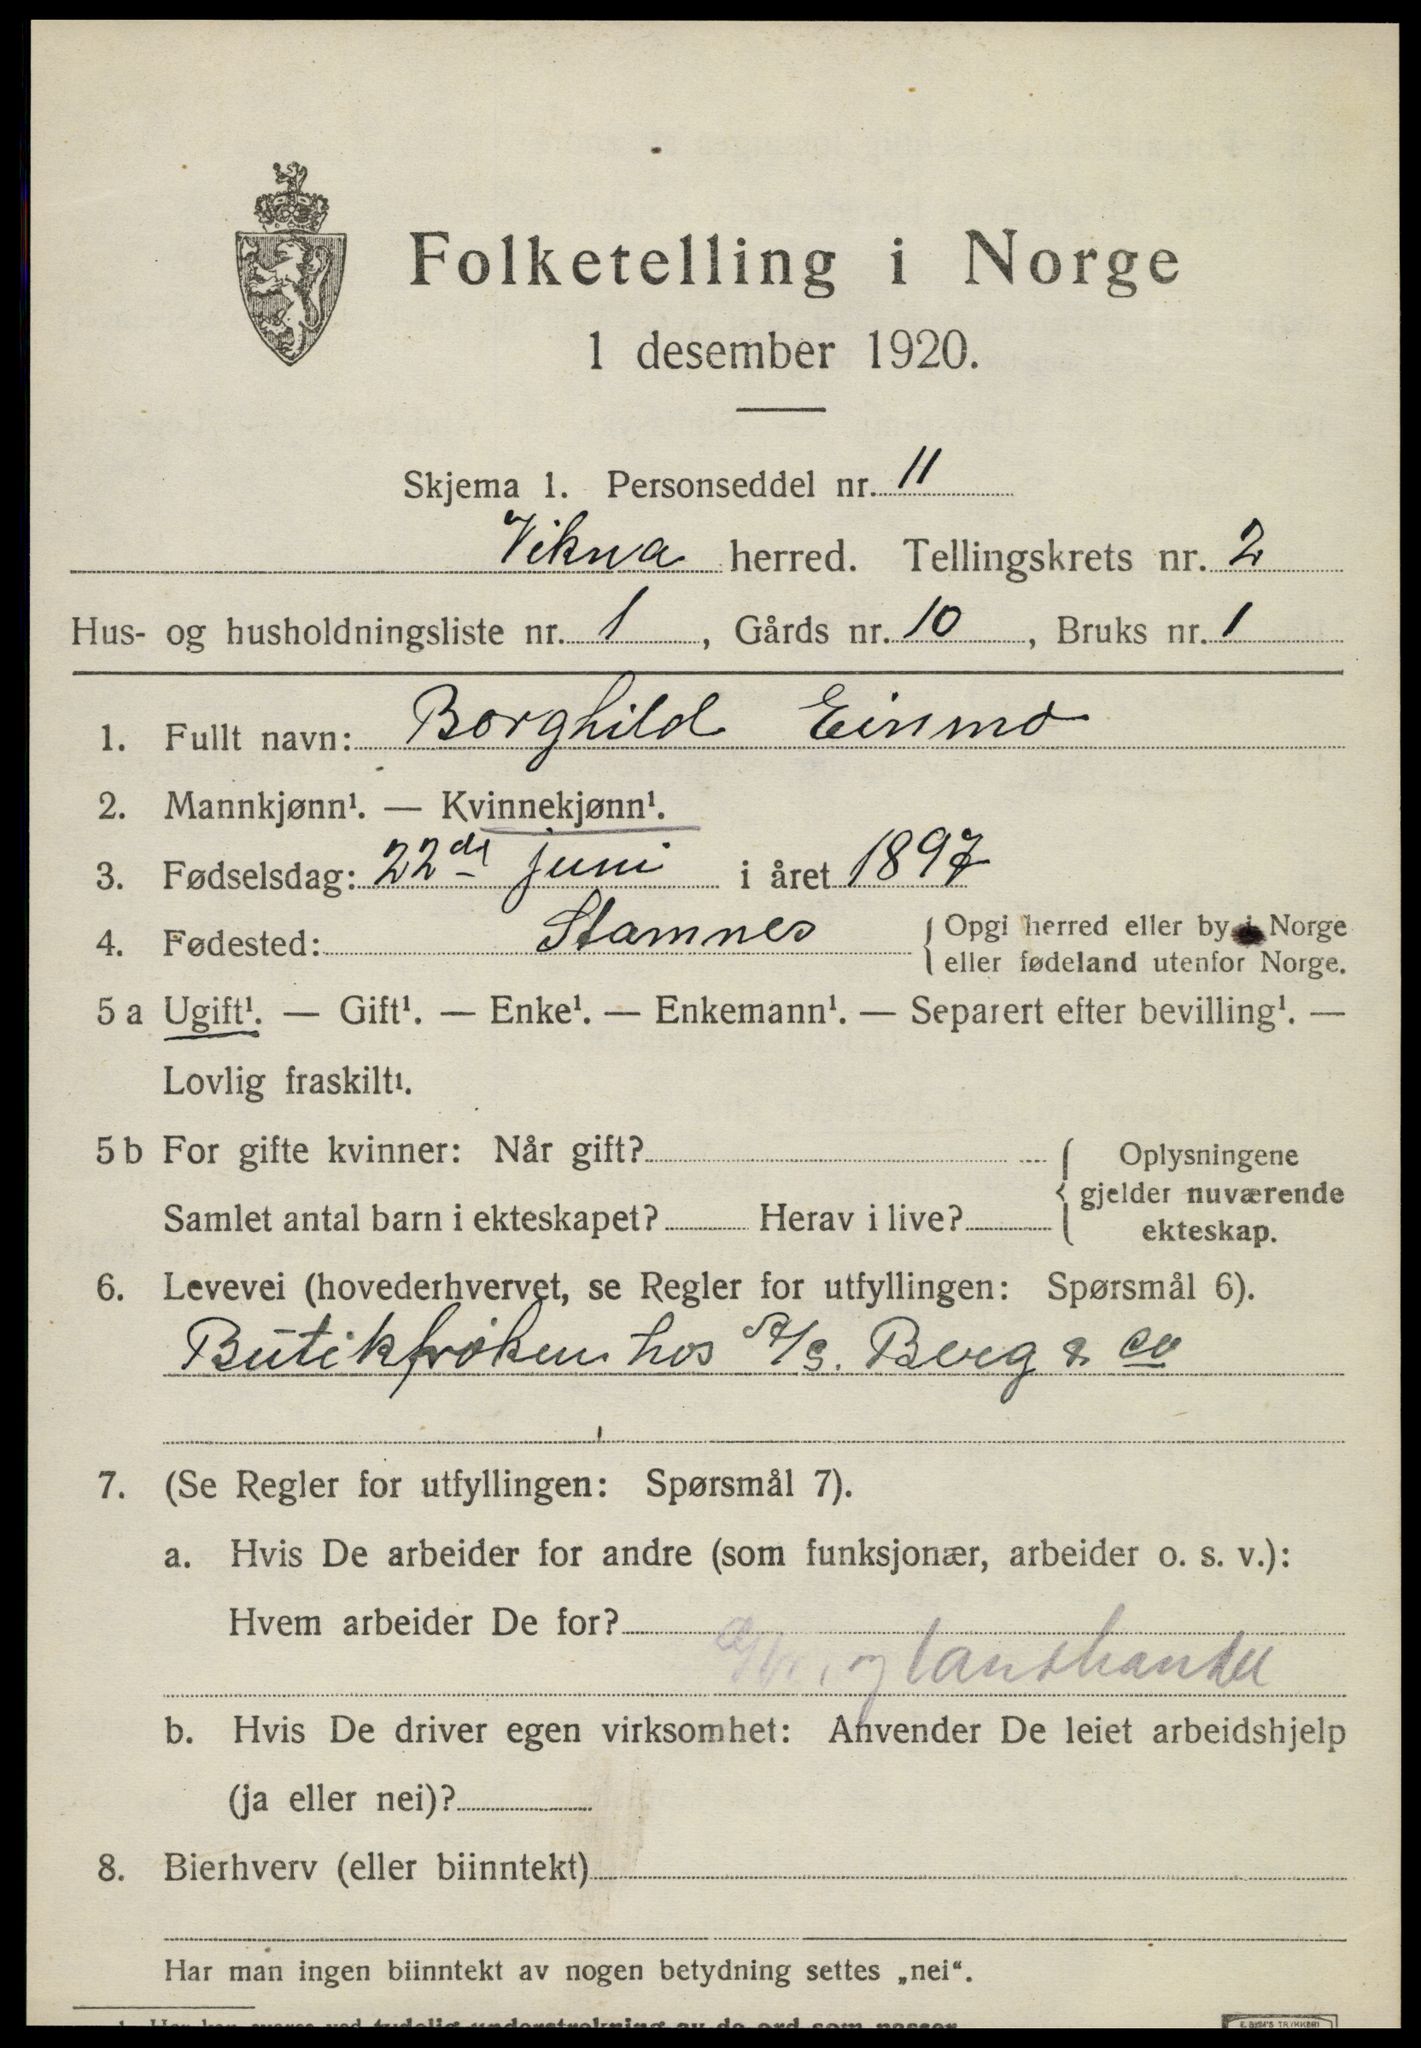 Folketelling i Norge
1 desember 1920.
Skjema 1. Personseddel nr. 11
Vikna herred. Tellingskrets nr. 2
Hus- og husholdningsliste nr. 1, Gårds nr. 10, Bruks nr. 1
1. Fullt navn: Borghild Einmo
2. Mannkjønn¹. — Kvinnekjønn¹.
3. Fødselsdag: 22de juni i året 1897
4. Fødested: Stamnes { Opgi herred eller by i Norge
eller fødeland utenfor Norge.
5 a Ugift¹. — Gift¹. — Enke¹. — Enkemann¹. — Separert efter bevilling¹. —
Lovlig fraskilt¹.
5 b For gifte kvinner: Når gift?
Samlet antal barn i ekteskapet? Herav i live?
{ Oplysningene
gjelder nuværende
ekteskap.
6. Levevei (hovederhvervet, se Regler for utfyllingen: Spørsmål 6).
Butikfrøken hos A/S. Berg & Co
7. (Se Regler for utfyllingen: Spørsmål 7).
a. Hvis De arbeider for andre (som funksjonær, arbeider o. s. v.):
Hvem arbeider De for?
og landhandel
b. Hvis De driver egen virksomhet: Anvender De leiet arbeidshjelp
(ja eller nei)?
8. Bierhverv (eller biinntekt)
Har man ingen biinntekt av nogen betydning settes „nei“.